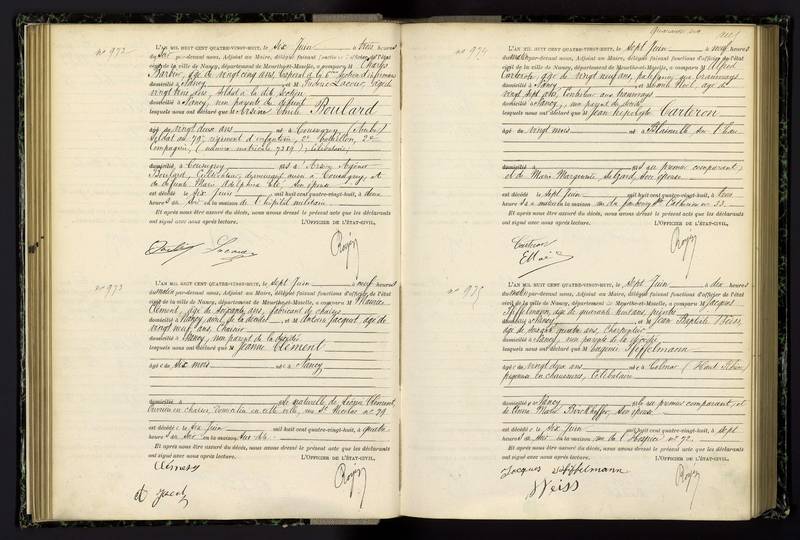 nº 972
L'AN MIL HUIT CENT QUATRE-VINGT-HUIT, le six Juin à trois heures
du soir par-devant nous, Adjoint au Maire, délégué faisant fonctions d'officier de l'état
civil de la ville de Nancy, département de Meurthe-et-Moselle, a comparu M Charles
Barbier, âgé de vingt cinq ans, caporal à la 6me Section d'infirmiers
domicilié à Nancy et M
vingt trois ans, soldat à la dite Section
domicilié à Nancy, non parents du défunt
lesquels nous ont déclaré que M Arsène Emile Boulard
âgé de vingt deux ans né à Cousegrey (Aube)
Soldat au 79e régiment d'infanterie, 2e bataillon, 2e
Compagnie, (numéro matricule 7389), célibataire,
domicilié à Cousegrey fils d'Arsène
Boulard, Cultivateur, demeurant aussi à Cousegrey, et
de défunte Marie Delphine son épouse
est décédé le six Juin mil huit cent quatre-vingt-huit, à deux
heures du soir en la maison de l'hôpital militaire
Et après nous être assuré du décès, nous avons dressé le présent acte que les déclarants
ont signé avec nous après lecture. L'OFFICIER DE L'ÉTAT-CIVIL,
nº 973
L'AN MIL HUIT CENT QUATRE-VINGT-HUIT, le sept Juin à neuf heures
du matin par-devant nous, Adjoint au Maire, délégué faisant fonctions d'officier de l'état
civil de la ville de Nancy, département de Meurthe-et-Moselle, a comparu M Maurice
Clément, âgé de soixante ans, fabricant de chaises
domicilié à Nancy, aïeul de la décédée et M Antoine Jacquot, âgé de
vingt neuf ans, Chaisier
domicilié à Nancy, non parent de la décédée
lesquels nous ont déclaré que M Jeanne Clément
âgée de six mois née à Nancy
domiciliée à fille naturelle de Clément,
ouvrière en chaises, domiciliée en cette ville, rue St Nicolas nº 79
est décédée le six Juin mil huit cent quatre-vingt-huit, à quatre
heures du soir en la maison sus dite
Et après nous être assuré du décès, nous avons dressé le présent acte que les déclarants
ont signé avec nous après lecture. L'OFFICIER DE L'ÉTAT-CIVIL,
Clément
nº 974
L'AN MIL HUIT CENT QUATRE-VINGT-HUIT, le sept Juin à neuf heures
du matin par-devant nous, Adjoint au Maire, délégué faisant fonctions d'officier de l'état
civil de la ville de Nancy, département de Meurthe-et-Moselle, a comparu M Alfred
Carteron, âgé de vingt neuf ans, palefrenier aux tramways
domicilié à Nancy et M âgé de
vingt sept ans, Conducteur aux tramways
domicilié à Nancy, non parent du décédé
lesquels nous ont déclaré que M Jean Hippolyte Carteron
âgé de vingt mois né à Blainville sur l'Eau
domicilié à fils du premier comparant,
et de Marie Marguerite son épouse
est décédé le sept Juin mil huit cent quatre-vingt-huit, à trois
heures du matin en la maison rue du faubourg Ste Catherine nº 33
Et après nous être assuré du décès, nous avons dressé le présent acte que les déclarants
ont signé avec nous après lecture. L'OFFICIER DE L'ÉTAT-CIVIL,
Carteron
nº 975
L'AN MIL HUIT CENT QUATRE-VINGT-HUIT, le sept Juin à dix heures
du matin par-devant nous, Adjoint au Maire, délégué faisant fonctions d'officier de l'état
civil de la ville de Nancy, département de Meurthe-et-Moselle, a comparu M Jacques
Stiffelmann, âgé de quarante huit ans, peintre
domicilié à Nancy et M Jean Baptiste Weiss,
âgé de soixante quatre ans, Charpentier
domicilié à Nancy, non parent de la décédée
lesquels nous ont déclaré que M Eugénie Stiffelmann
âgée de vingt deux ans née à Colmar (Haut Rhin)
piqueuse en chaussures, célibataire
domiciliée à Nancy fille du premier comparant, et
de Marie son épouse
est décédée le six Juin mil huit cent quatre-vingt-huit, à sept
heures du soir en la maison rue de l'Hospice nº 72
Et après nous être assuré du décès, nous avons dressé le présent acte que les déclarants
ont signé avec nous après lecture. L'OFFICIER DE L'ÉTAT-CIVIL,
Jacques Stiffelmann
Weiss